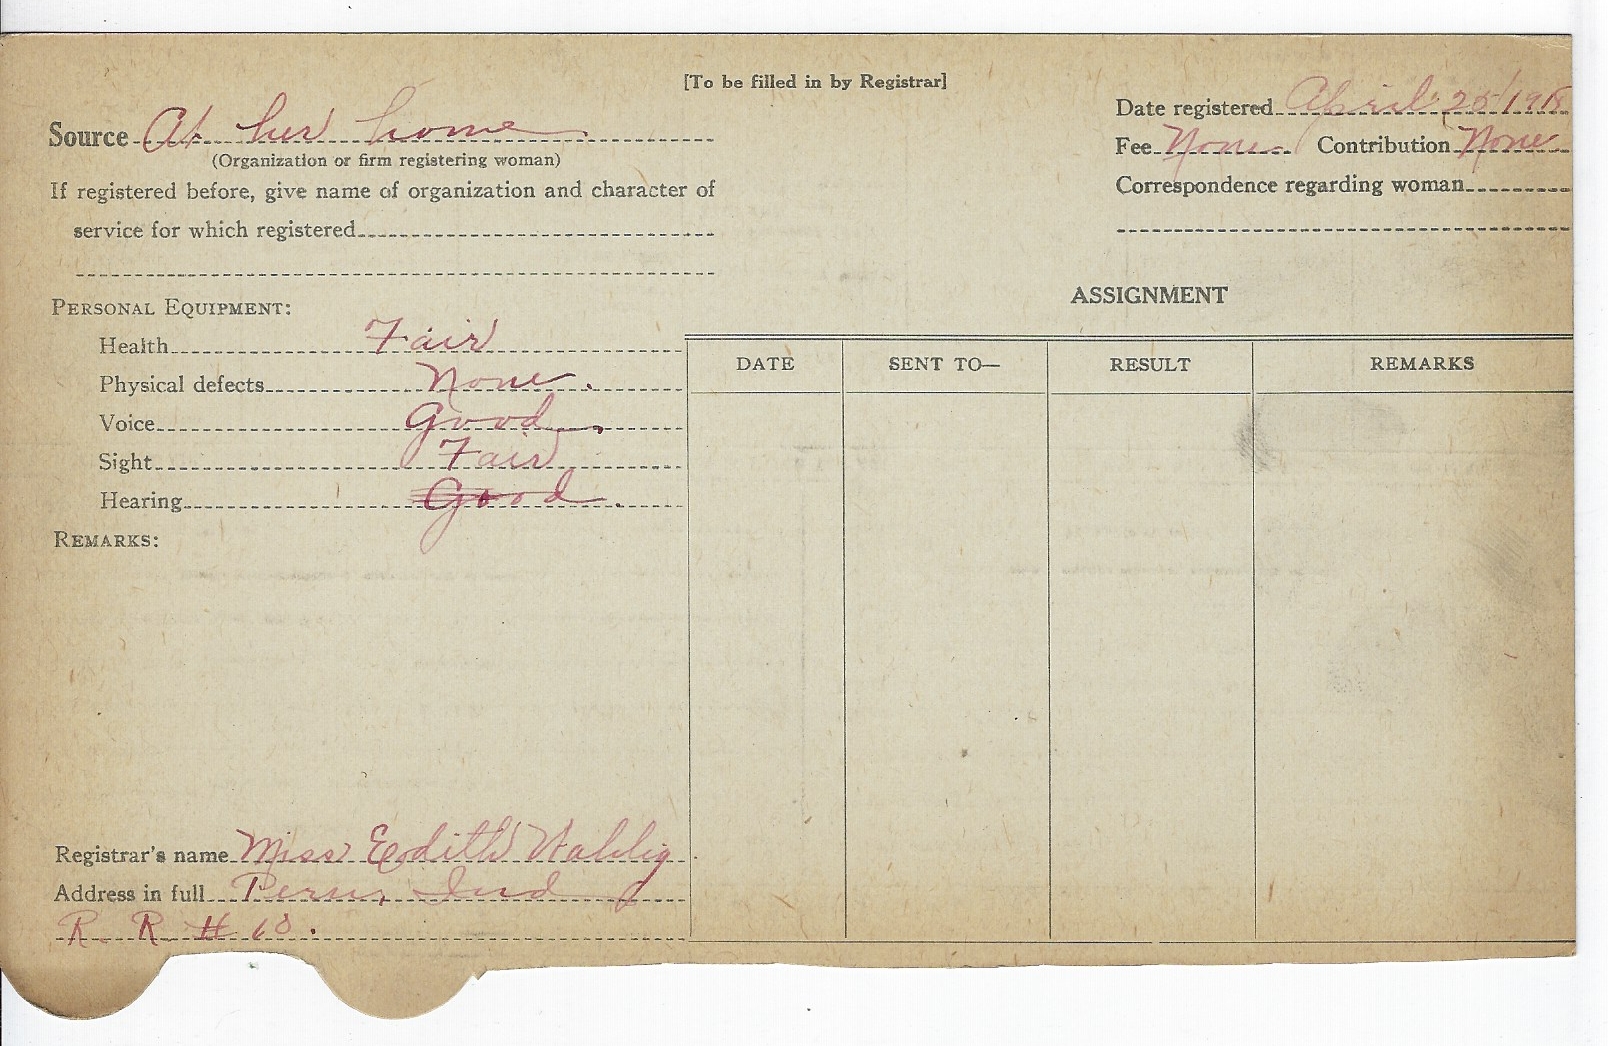 [To be filled in by Registrar]
Source At her home.
(Organization or firm registering woman)
If registered before, give name of organization and character of
service for which registered
Date registered April 25 1918
Fee None Contribution None
Correspondence regarding woman
PERSONAL EQUIPMENT:
Health Fair
Physical defects None.
Voice Good.
Sight Fair
Hearing Good.
REMARKS:
ASSIGNMENT
DATE SENT TO— RESULT REMARKS
Registrar's name Miss Edith
Address in full Peru, Ind
R. R. # 10.